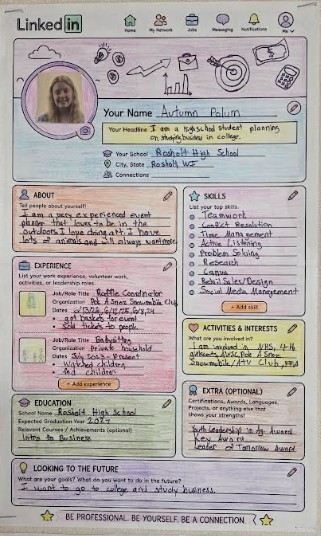 LinkedIn
Home
My Network
Jobs
Messaging
Notifications
Me
Your Name Autumn Polum
Your Headline I am a highschool student planning
on studying business in college.
Your School Rosholt High School
City, State Rosholt WI
Connections
ABOUT
Tell people about yourself!
I am a very experienced event
planer that loves to be in the
outdoors I love doing art. I have
lots of animals and will always want more.
EXPERIENCE
List your work experience, volunteer work,
activities, or leadership roles.
Job/Role Title Raffle Coordinator
Organization Snowmobile Club
Dates
got baskets for event
Sold tickets to people
Job/Role Title Babysitting
Organization Private household
Dates July 2023 - Present
Watched children
fed children
+ Add experience
EDUCATION
School Name Rosholt High School
Expected Graduation Year 2027
Relevant Courses / Achievements (optional)
Intro to Business
SKILLS
List your top skills.
Teamwork
Conflict Resolution
Time Management
Active Listening
Problem Solving
Research
Canva
Retail Sales/Design
Social Media Management
+ Add skill
ACTIVITIES & INTERESTS
What are you involved in?
I am involved in NHS, 4-H
Snowmobile/ATV Club,
EXTRA (OPTIONAL)
Certifications, Awards, Languages,
Projects, or anything else that
shows your strengths!
Youth Leadership in Ag. Award
Key Award
Leader of Tomorrow Award
LOOKING TO THE FUTURE
What are your goals? What do you want to do in the future?
I want to go to college and study business.
BE PROFESSIONAL. BE YOURSELF. BE A CONNECTION.